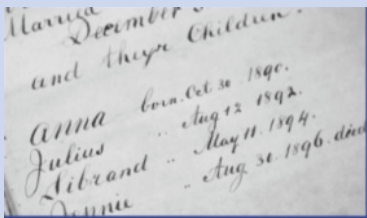 Married
December
and theyr Children.
Anna born. Oct 30 1890.
Julius " Aug 12 1892.
Sibrand " May 11. 1894.
Jennie " Aug 31. 1896. died